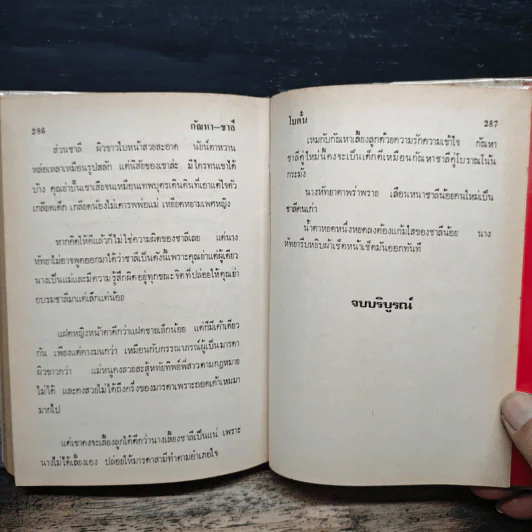 286
กัณหา—ชาลี
ส่วนชาลี ผิวขาวใบหน้าสวยสะอาด นัยน์ตาหวาน
หล่อเหลาเหมือนรูปสลัก แต่นิสัยของเขาล่ะ มีใครทนเขาได้
บ้าง คุณย่าปั้นเขาเสียจนเหมือนเทพบุตรเดินดินที่เอาแต่ใจตัว
เกลียดเด็ก เกลียดน้องไม่เคารพพ่อแม่ เหยียดหยามเพศหญิง
หากคิดให้ดีแล้วก็ไม่ใช่ความผิดของชาลีเลย แต่นาง
หทัยาไม่อาจพูดออกมาได้ว่าชาลีเป็นดังนี้เพราะคุณย่าแต่ผู้เดียว
นางเป็นแม่และมีความรู้สึกผิดอยู่ทุกขณะจิตที่ปล่อยให้คุณย่า
อบรมชาลีมาแต่เล็กแต่น้อย
แฝดหญิงหน้าตาดีกว่าแฝดชายเล็กน้อย แต่ก็มีเค้าเดียว
กัน เพียงแต่คางมนกว่า เหมือนกับกรรณาภรณ์ผู้เป็นมารดา
ผิวขาวกว่า แม่หนูคงสวยสะสู้หทัยทิพย์พี่สาวตามกฎหมาย
ไม่ได้ และคงสวยไม่ได้ถึงครึ่งของมารดาเพราะถอดเค้าเหมมา
มากไป
แต่เขาคงจะเลี้ยงลูกได้ดีกว่านางเลี้ยงชาลีเป็นแน่ เพราะ
นางไม่ได้เลี้ยงเอง ปล่อยให้มารดาสามีทำตามอำเภอใจ
โบตั๋น
287
เหมกับกัณหาเลี้ยงลูกด้วยความรักความเข้าใจ กัณหา
ชาลีคู่ใหม่นี้คงจะเป็นเด็กดีเหมือนกัณหาชาลีคู่โบราณโน้น
กระมัง
นางหทัยาตาพร่าพราย เลือนหนาชาลีน้อยคนใหม่เป็น
ชาลีคนเก่า
น้ำตาหยดหนึ่งหยดลงต้องแก้มใสของชาลีน้อย นาง
หทัยารีบหยิบผ้าเช็ดหน้าเช็ดมันออกทันที
จบบริบูรณ์